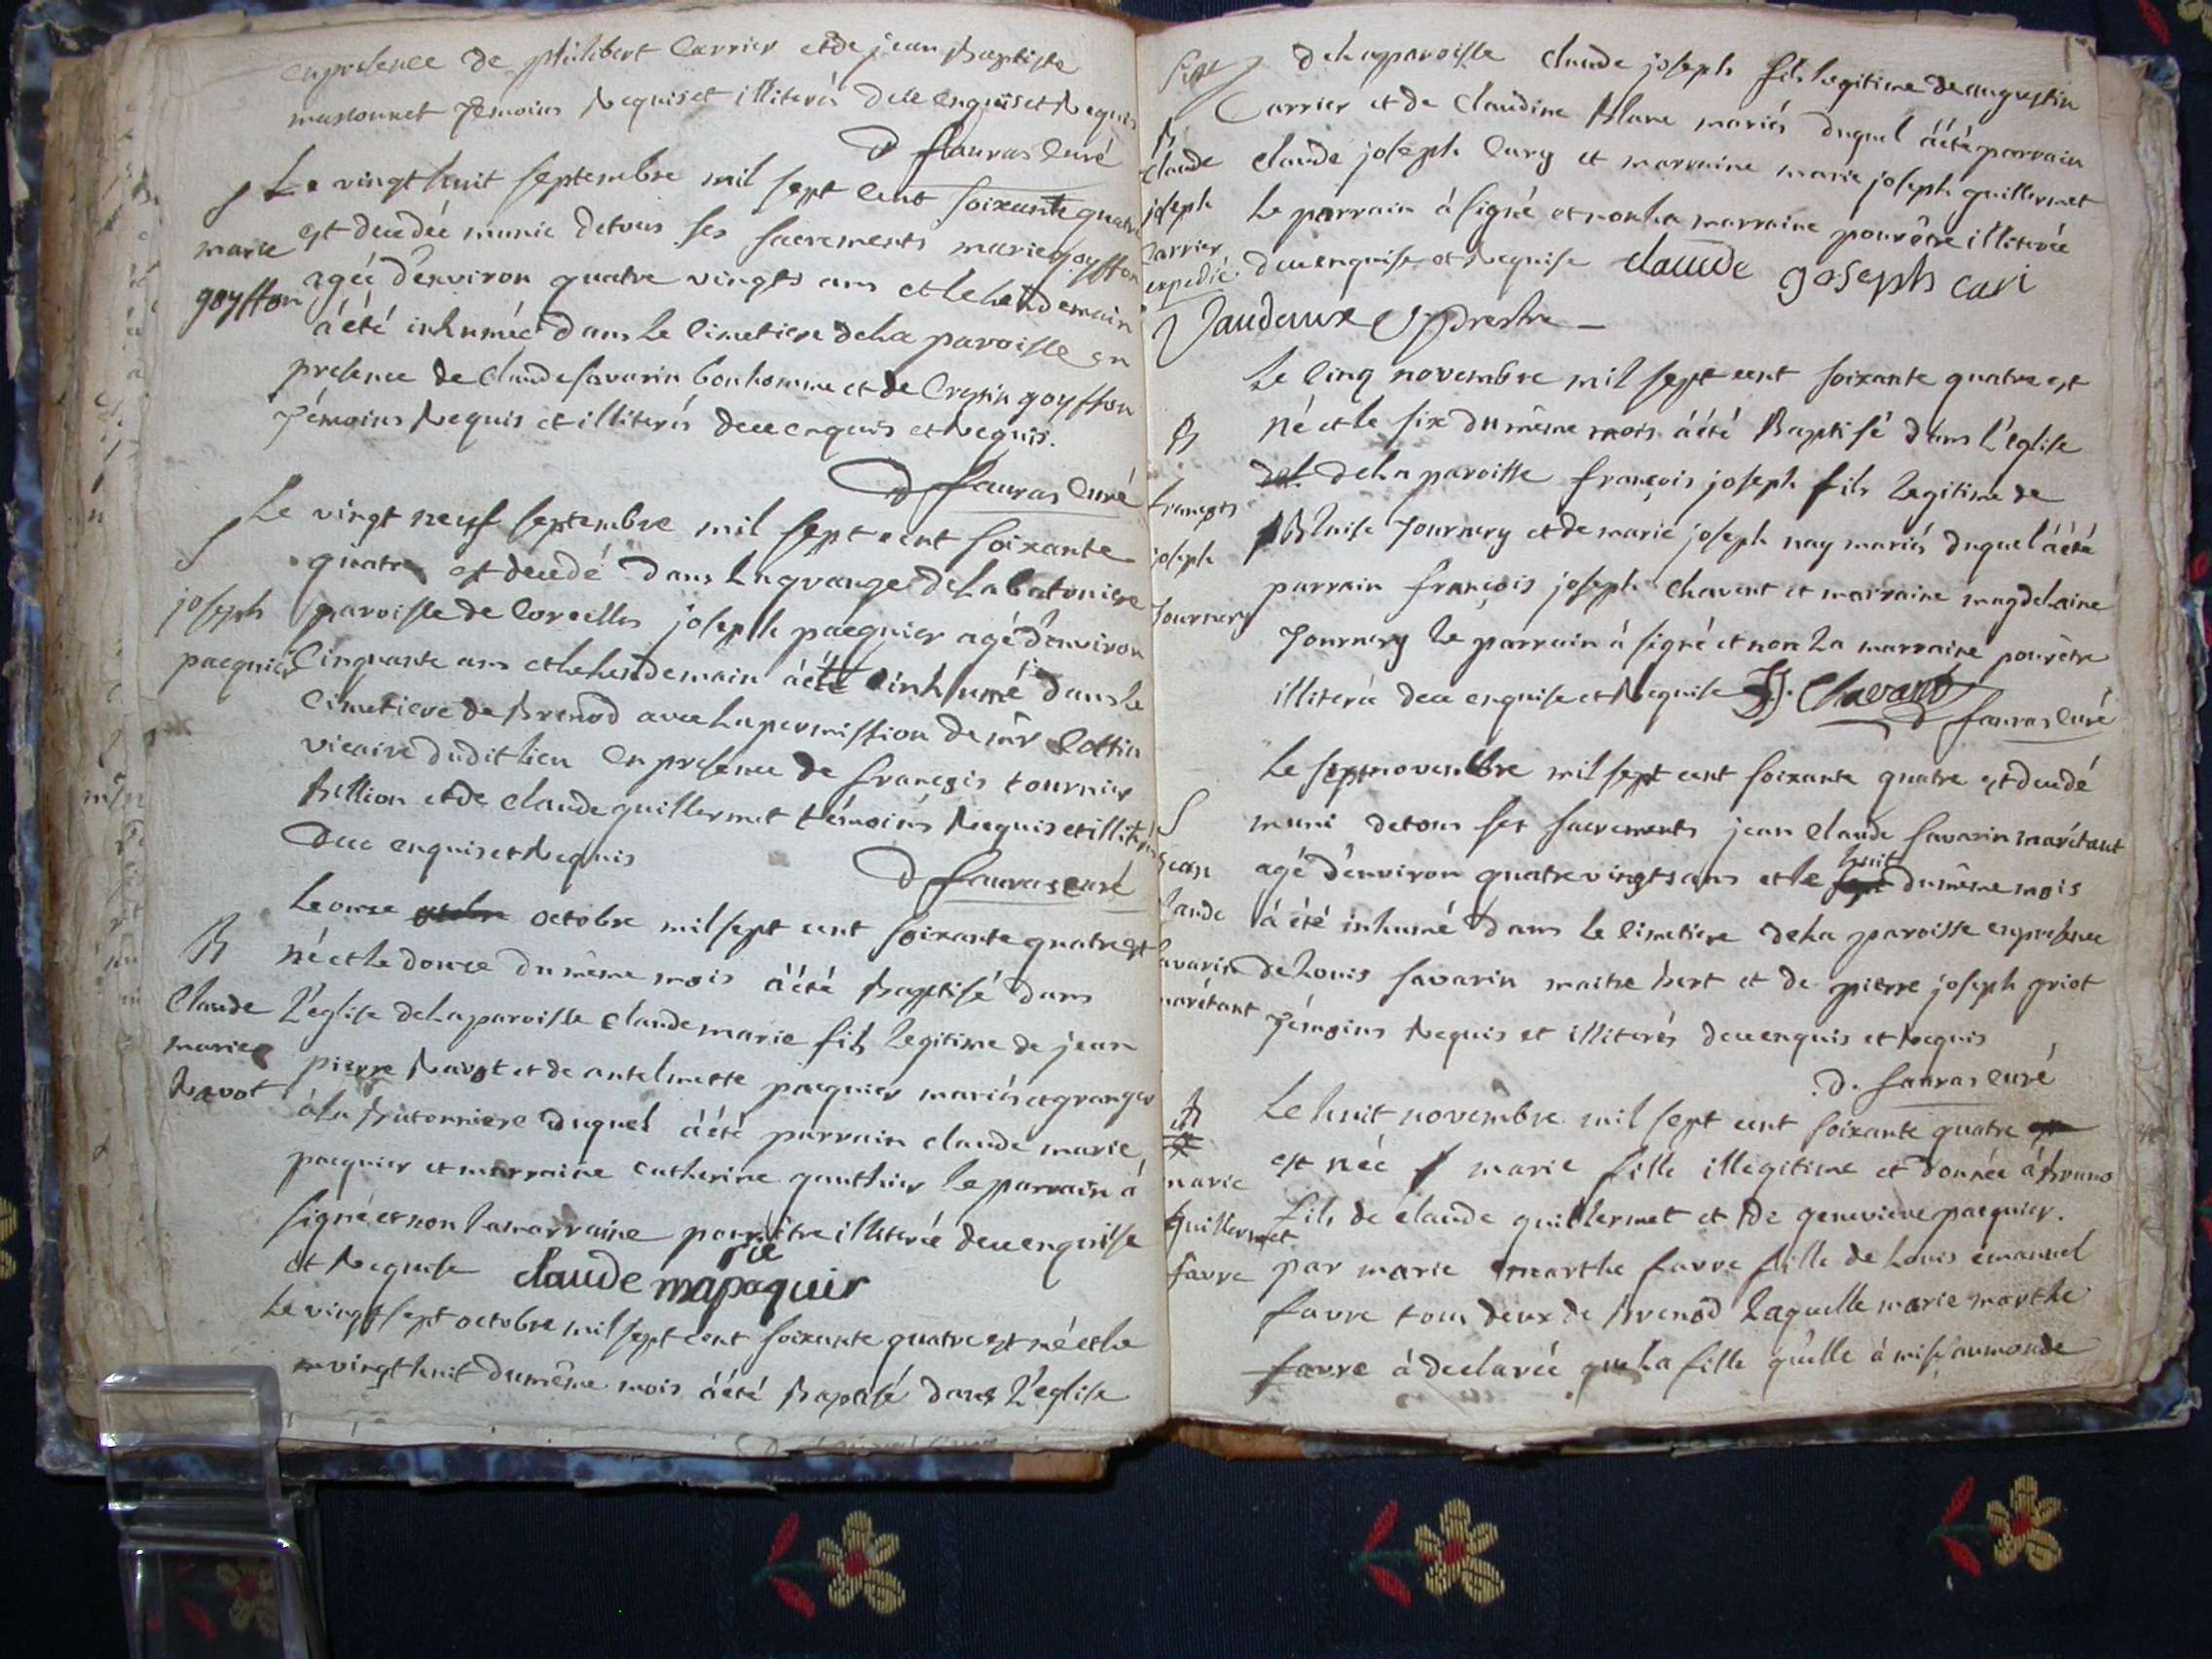 en presence de philibert Carrier et de jean Baptiste
massonnet témoins Requis et illiterés de ce enquis et Requis
D fauras Curé
S
marie
goyffon
Le vingt huit septembre mil sept cent soixante quatre
est decedée munie de tous ses sacrements marie goyffon
agée d'environ quatre vingts ans et le lendemain
à été inhumée dans le Cimetiere de la paroisse en
presence de Claude savarin bonhomme et de Crepin goyffon
témoins Requis et illiterés de ce enquis et Requis.
D fauras Curé
S
joseph
pacquier
Le vingt neuf septembre mil sept cent soixante
quatre est decedé dans la grange de la batoniere
paroisse de Corcelles joseph pacquier agé d'environ
Cinquante ans et le lendemain à été inhumé dans le
Cimetiere de Brenod avec la permission de mr Cottin
vicaire dudit lieu en presence de françois tournier
Billion et de Claude guillermet témoins Requis et illiterés
de ce enquis et Requis
D fauras curé
B
Claude
marie
Ravot
Le onze octobre octobre mil sept cent soixante quatre est
né et le douze du même mois à été Baptisé dans
L'église de la paroisse Claude marie fils legitime de jean
pierre Ravot et de antelmette pacquier mariés et granger
à la Butonniere duquel à été parrain claude marie
pacquier et marraine catherine gauthier le parrain à
signé et non la marraine pour être illiterée de ce enquise
et Requise claude marie paquir
Le vingt sept octobre mil sept cent soixante quatre est né et le
vingt huit du même mois à été Baptisé dans L'église
de la paroisse Claude joseph fils legitime de augustin
Carrier et de Claudine Blanc mariés duquel à été parrain
B
Claude
joseph
Carrier
expedié
claude joseph Cury et marraine marie joseph guillermet
Le parrain à signé et non la marraine pour être illiterée
de ce enquise et Requise claude joseph curi
Vaudaux prestre
B
françois
joseph
Journery
Le Cinq novembre mil sept cent soixante quatre est
né et le six du même mois à été Baptisé dans l'église
de la paroisse françois joseph fils legitime de
Blaise Journery et de marie joseph nay mariés duquel à été
parrain françois joseph Chavent et marraine magdelaine
Journery le parrain à signé et non la marraine pour être
illiterée de ce enquise et Requise fj. Chavant
D fauras curé
S
jean
claude
savarin
marétant
Le sept novembre mil sept cent soixante quatre est decedé
muni de tous ses sacrements jean Claude savarin marétant
agé d'environ quatre vingts ans et le sept huit du même mois
à été inhumé dans le cimetiere de la paroisse en presence
de Louis savarin maitre bert et de pierre joseph griot
témoins Requis et illiterés de ce enquis et Requis
D. fauras curé
B
marie
guillermet
favre
Le huit novembre mil sept cent soixante quatre
est née marie fille illegitime et donnée à Bruno
fils de claude guillermet et de genevieve pacquier.
par marie marthe favre fille de Louis emanuel
favre tous deux de Brenod Laquelle marie marthe
favre à declarée que la fille qu'elle à mise au monde